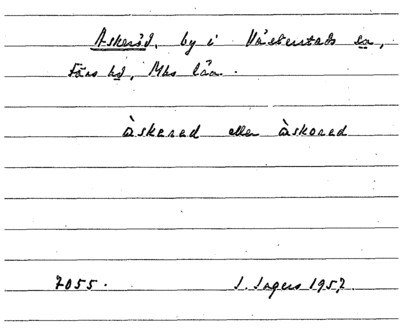 Askeröd, by i Västerstads sn,
Färs hd, Mhs län.
àskarad eller àskorad
7055. I. Ingers 1957.